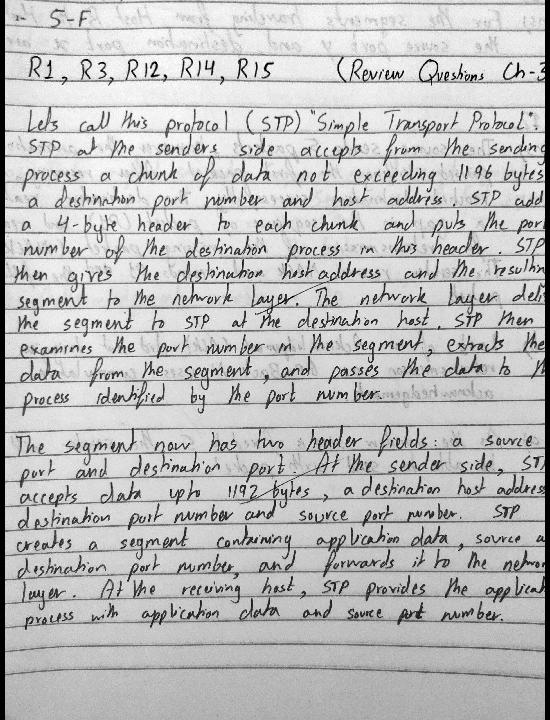 5-F
R1, R3, R12, R14, R15 (Review Questions Ch-3
Lets call this protocol (STP) "Simple Transport Protocol".
STP at the senders side accepts from the sending
process a chunk of data not exceeding 1196 bytes
a destination port number and host address. STP add
a 4-byte header to each chunk and puts the por
number of the destination process in this header. STP
then gives the destination host address and the resultin
segment to the network layer. The network layer deli
the segment to STP at the destination host. STP then
examines the port number in the segment, extracts the
data from the segment, and passes the data to th
process identified by the port number.
The segment now has two header fields: a source
port and destination port. At the sender side, STP
accepts data upto 1192 bytes, a destination host address
destination port number and source port number. STP
creates a segment containing application data, source a
destination port number, and forwards it to the networ
layer. At the receiving host, STP provides the applicat
process with application data and source port number.